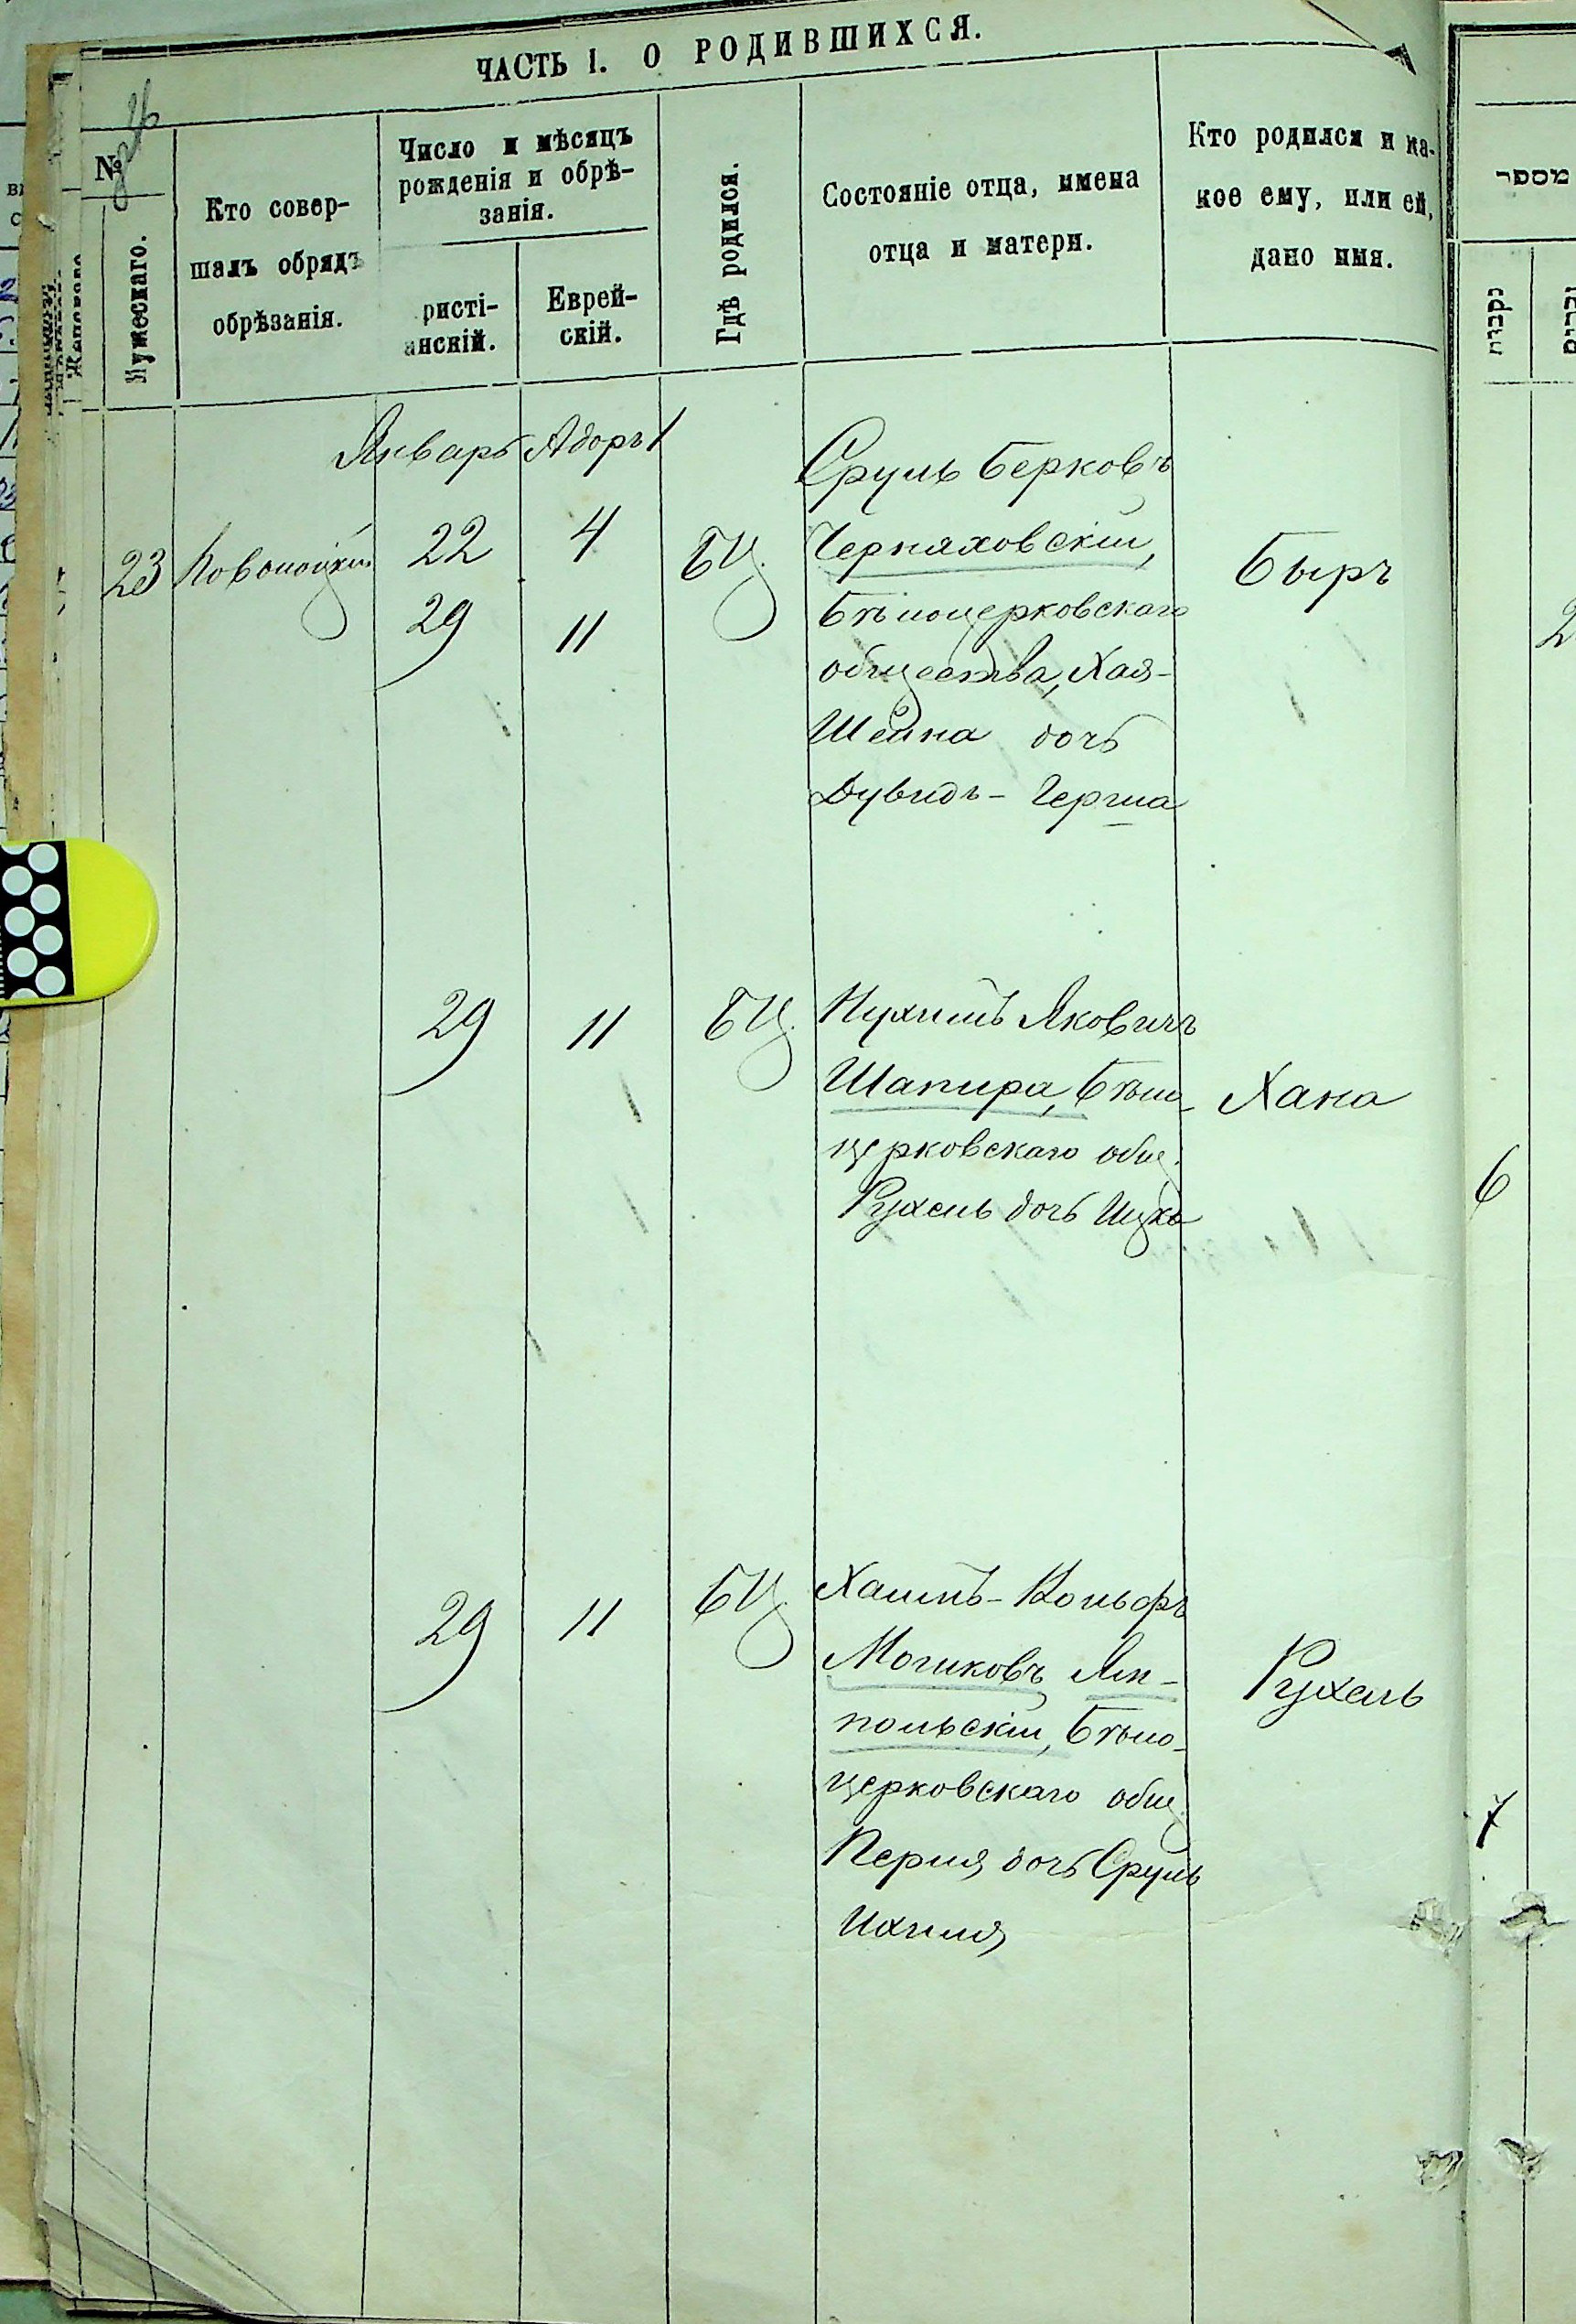 ЧАСТЬ I. О РОДИВШИХСЯ.
№
Мужескаго.
Кто совер-
шалъ обрядъ
обрѣзанія.
Число и мѣсяцъ
рожденія и обрѣ-
занія.
ристі-
анскій.
Еврей-
скій.
Гдѣ родился.
Состояніе отца, имена
отца и матери.
Кто родился и ка-
кое ему, или ей,
дано имя.
מספר
נקבות
Январь Адоръ 1
23
22 4
29 11
БЦ.
Сруль Берковъ
Черняховскій,
Бѣлоцерковскаго
общества, Хая-
Шейна дочь
Дувидъ-Герша
Быръ
29 11 БЦ.
Нухимъ Яковичъ
Шапира, Бѣло-
церковскаго общ.
Рухель дочь Ицко
Хана
6
29 11 БЦ.
Хаимъ-Вольфъ
Мошковъ Ям-
польскій, Бѣло-
церковскаго общ.
Перля дочь Сруль
Ихиля
Рухель
7